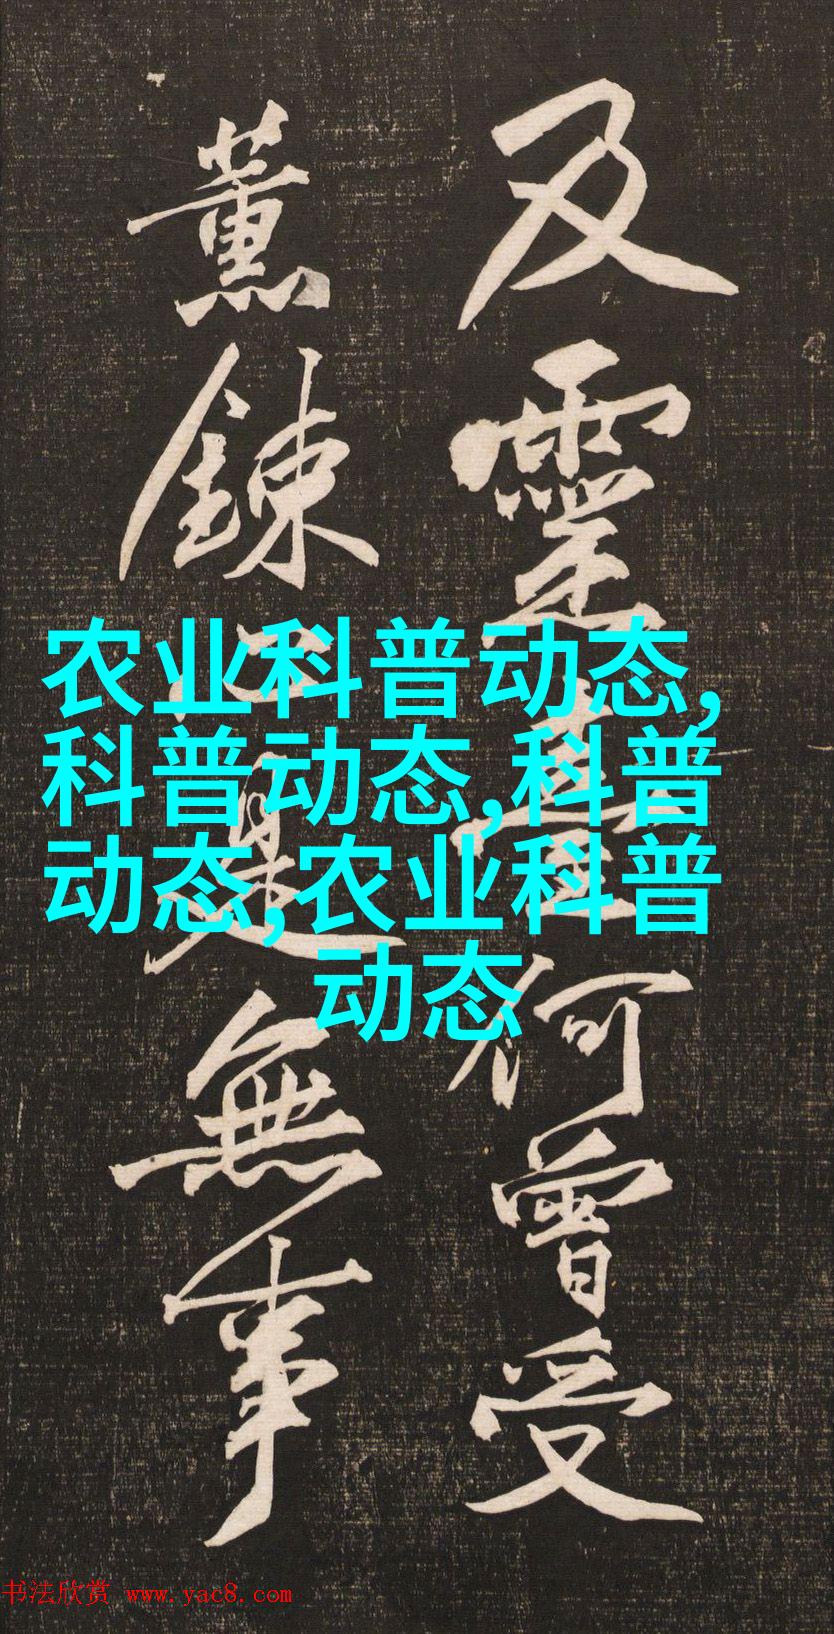 及靈臺何曾受
薰鍊心是無事
农业科普动态,
科普动态,科普
动态,农业科普
动态
书法欣赏 www.yac8.com